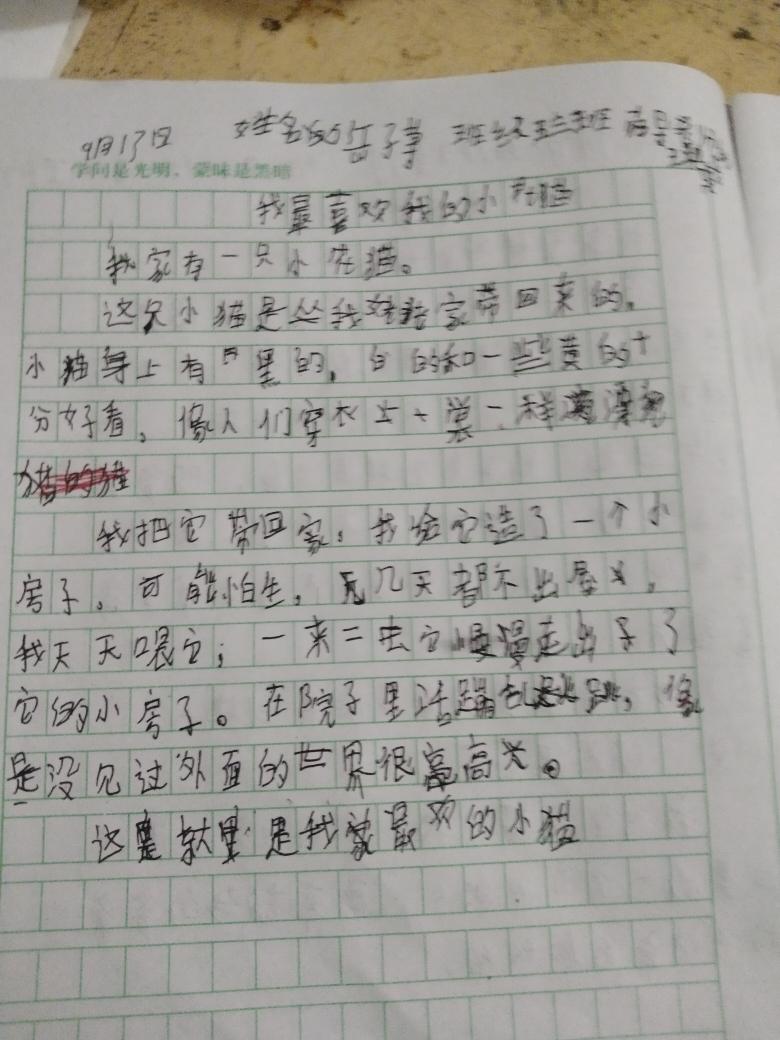 9月17日 姓名 子 班级
学问是光明，蒙昧是黑暗
我最喜欢我的小猫
我家有一只小花猫。
这只小猫是从我姑姑家带回来的，
小猫身上有 黑的，白的和一些黄的十
分好看，像人们穿衣 一样 漂
我把它带回家，我给它造了一个小
房子。可能怕生，几天都不出屋，
我天天喂它；一来二去它慢慢走出了
它的小房子。在院子里活蹦乱跳，像
是没见过外面的世界很高兴。
这就是我最欢的小猫